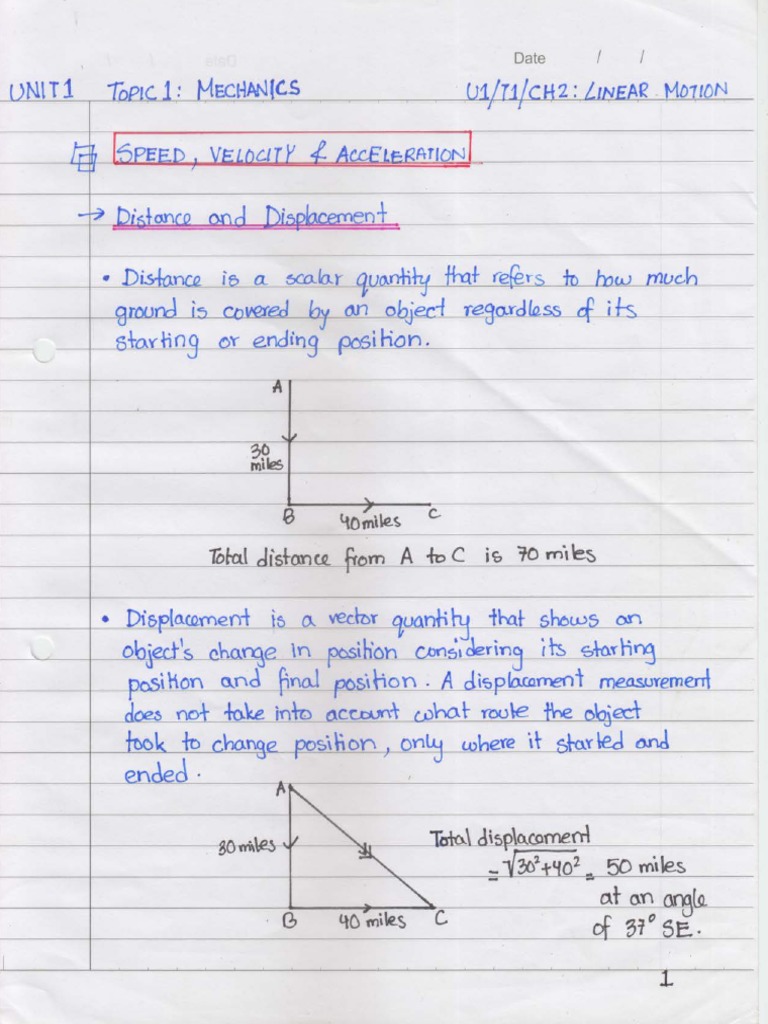 Date / /
UNIT 1 TOPIC 1: MECHANICS U1/T1/CH2: LINEAR MOTION
SPEED, VELOCITY & ACCELERATION
→ Distance and Displacement
• Distance is a scalar quantity that refers to how much
ground is covered by an object regardless of its
starting or ending position.
A
30
miles
B 40 miles C
Total distance from A to C is 70 miles
• Displacement is a vector quantity that shows an
object's change in position considering its starting
position and final position. A displacement measurement
does not take into account what route the object
took to change position, only where it started and
ended.
A
30 miles
B 40 miles C
Total displacement
= √30²+40² = 50 miles
at an angle
of 37° SE.
1